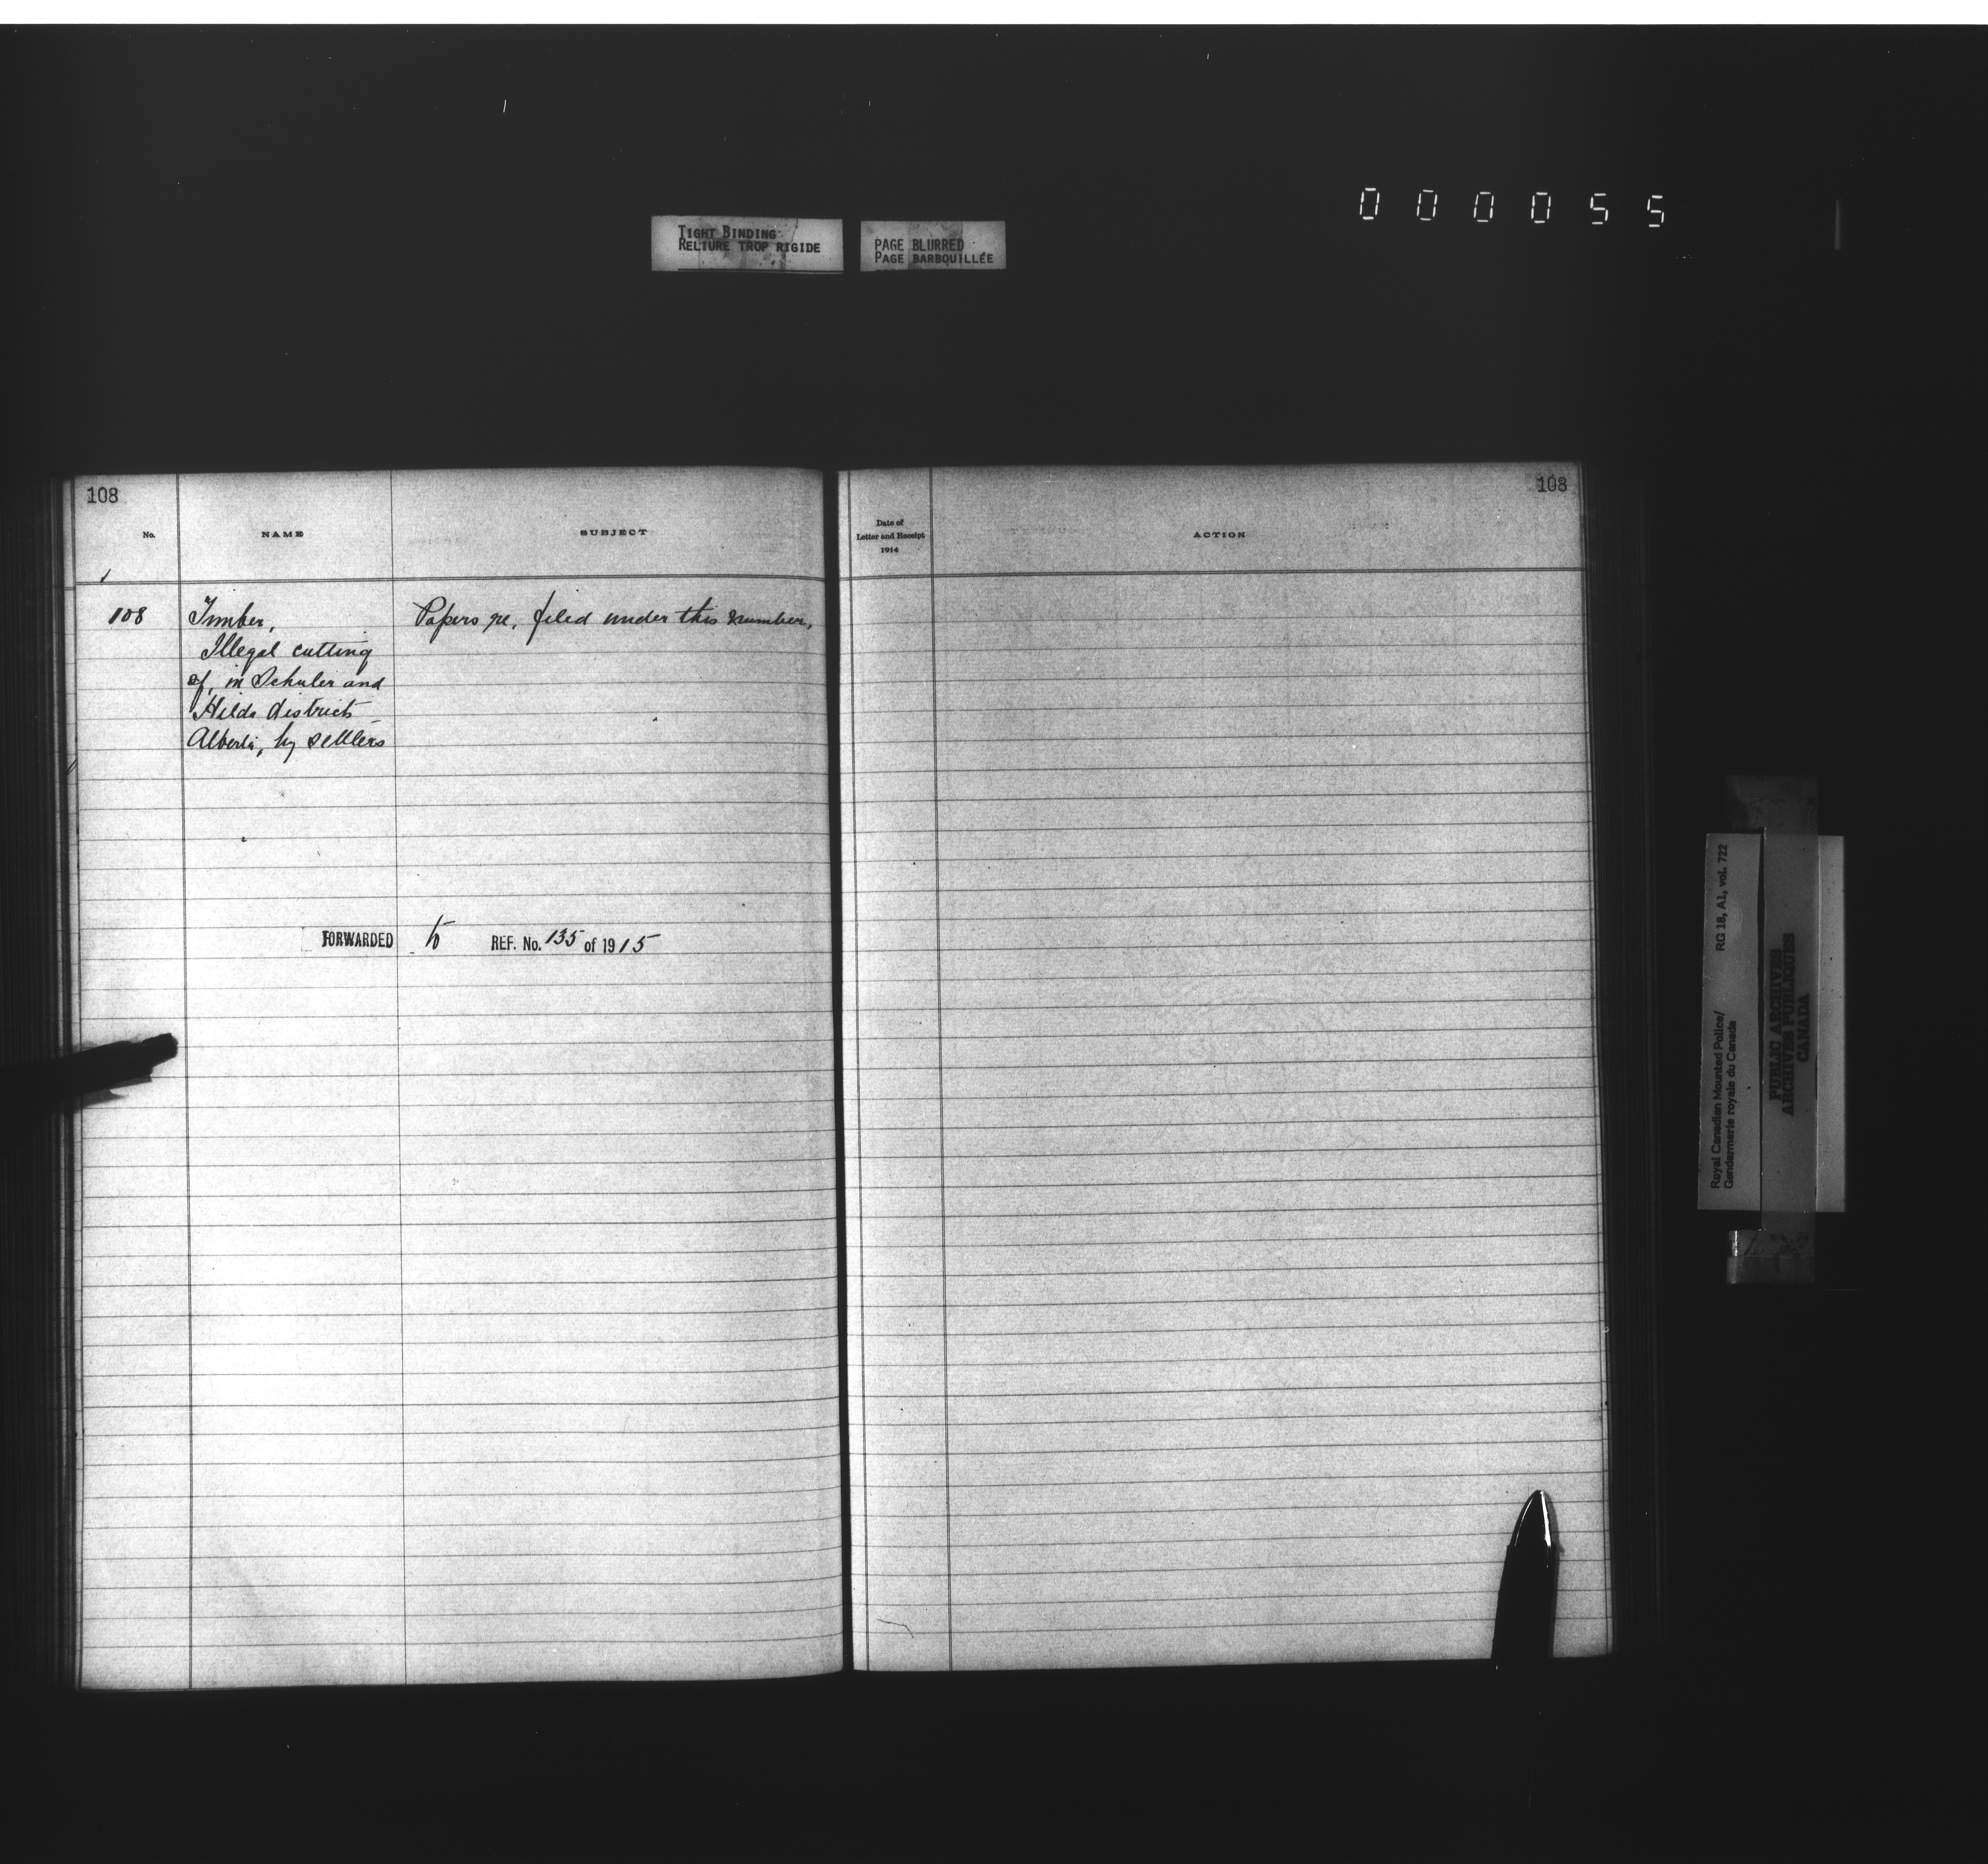 000055
TIGHT BINDING
RELIURE TROP RIGIDE
PAGE BLURRED
PAGE BARBOUILLÉE
108
No.
NAME
SUBJECT
108 Timber, Papers re, filed under this number,
Illegal cutting
of, in Schuler and
Hilda districts
Alberta, by settlers
FORWARDED to REF. No. 135 of 1915
108
Date of
Letter and Receipt
1914
ACTION
Royal Canadian Mounted Police/ RG 18, A1, vol. 722
Gendarmerie royale du Canada
PUBLIC ARCHIVES
ARCHIVES PUBLIQUES
CANADA